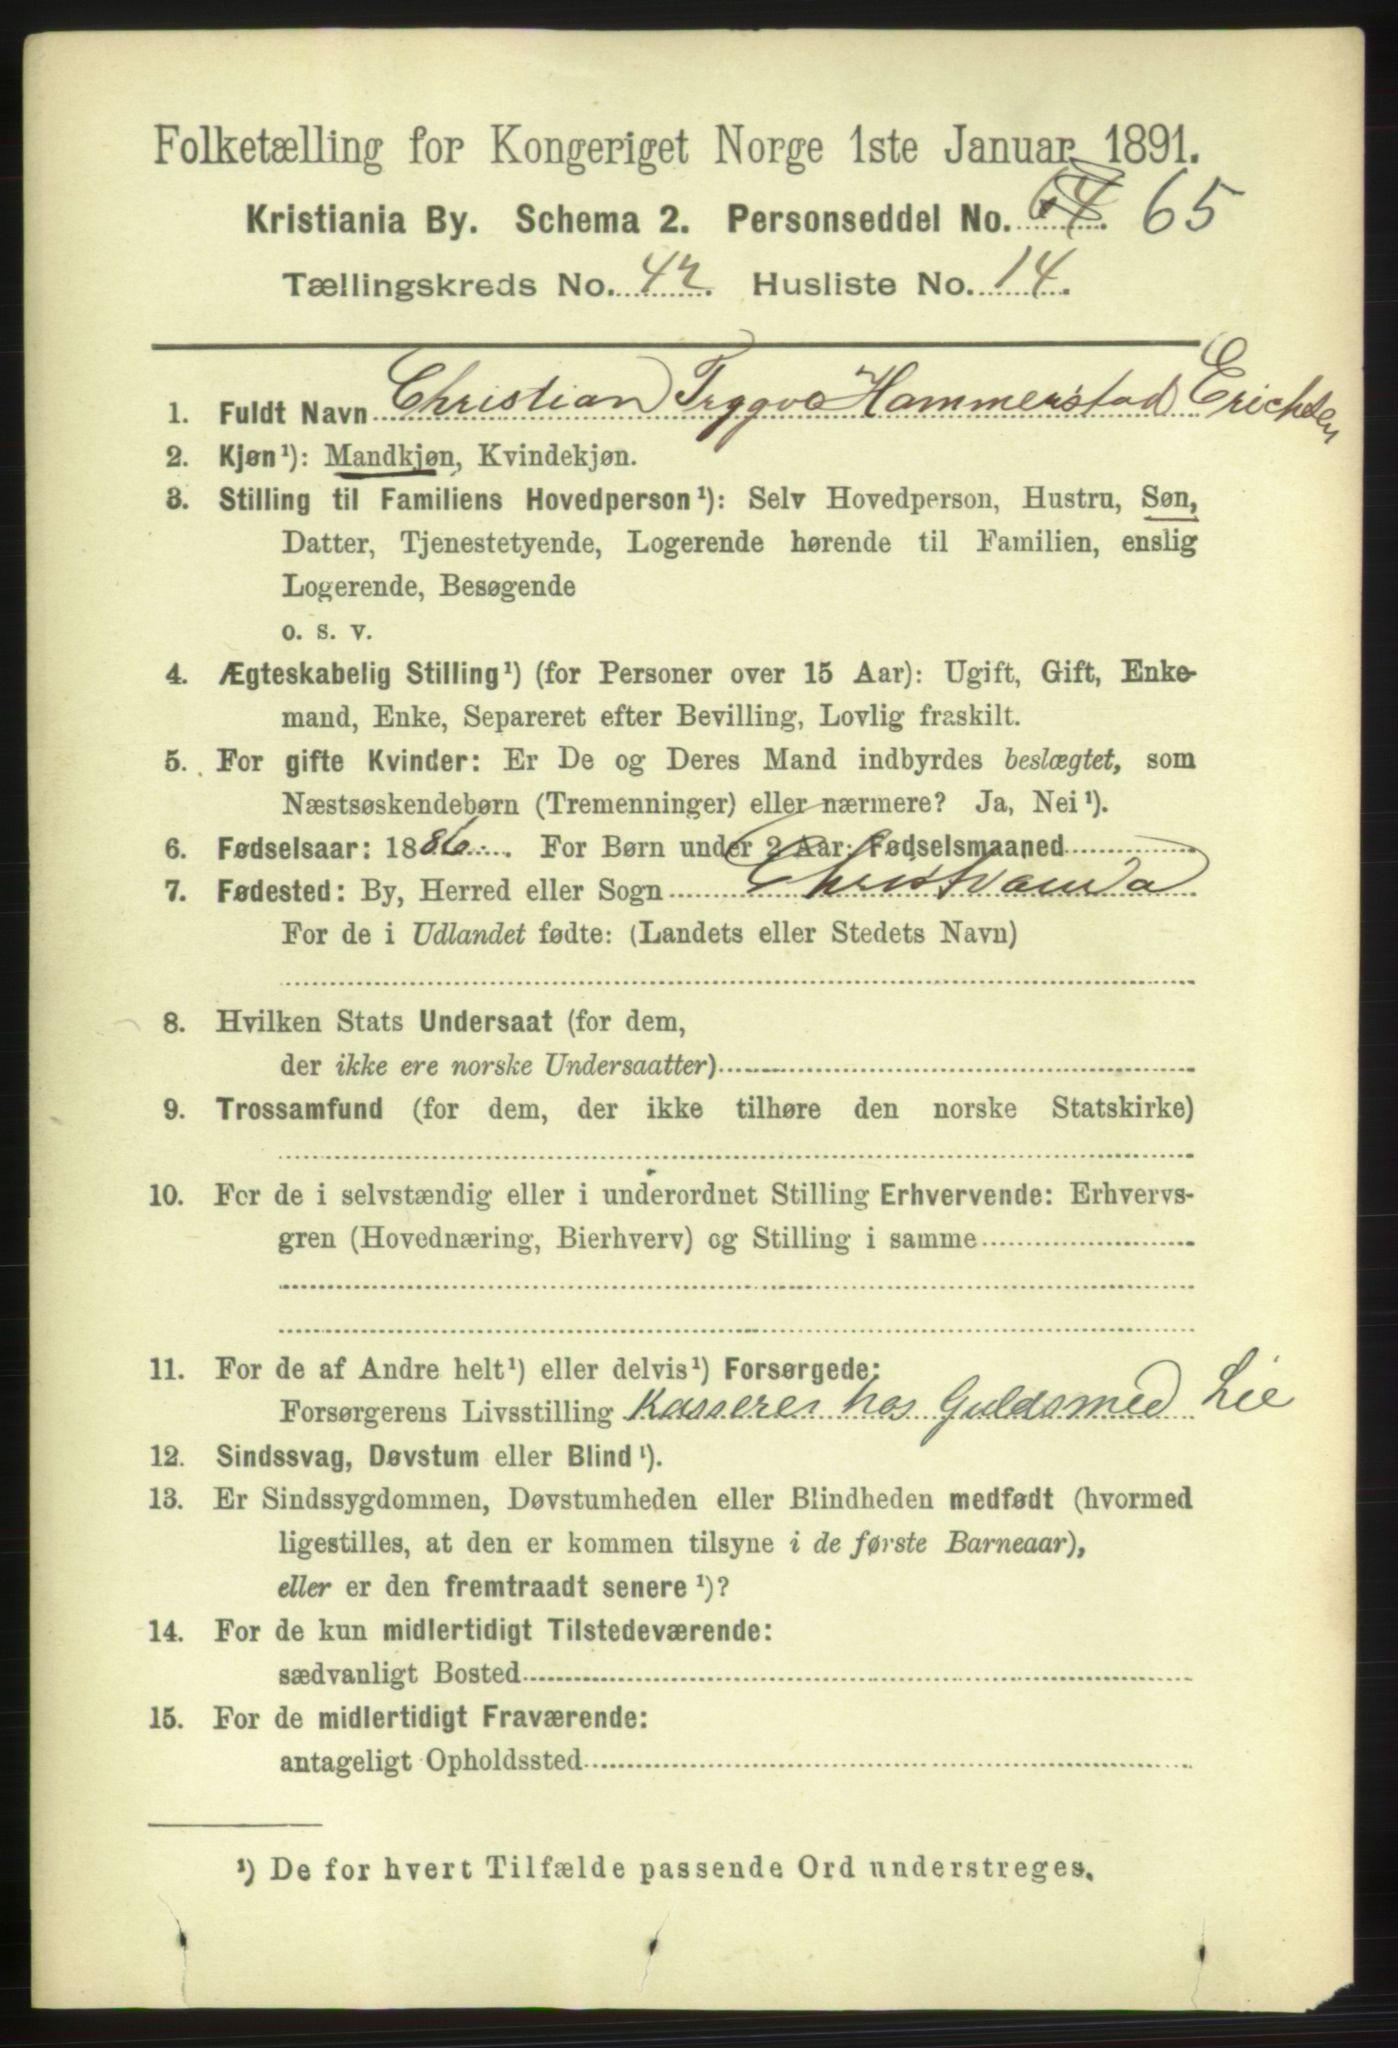 Folketælling for Kongeriget Norge 1ste Januar 1891.
Kristiania By. Schema 2. Personseddel No. 64. 65
Tællingskreds No. 42. Husliste No. 14.
1. Fuldt Navn Christian Trygve Hammerstad Erichsen
2. Kjøn¹): Mandkjøn, Kvindekjøn.
3. Stilling til Familiens Hovedperson¹): Selv Hovedperson, Hustru, Søn,
Datter, Tjenestetyende, Logerende hørende til Familien, enslig
Logerende, Besøgende
o. s. v.
4. Ægteskabelig Stilling¹) (for Personer over 15 Aar): Ugift, Gift, Enke-
mand, Enke, Separeret efter Bevilling, Lovlig fraskilt.
5. For gifte Kvinder: Er De og Deres Mand indbyrdes beslægtet, som
Næstsøskendebørn (Tremenninger) eller nærmere? Ja, Nei¹).
6. Fødselsaar: 1886. For Børn under 2 Aar: Fødselsmaaned
7. Fødested: By, Herred eller Sogn Christiania
For de i Udlandet fødte: (Landets eller Stedets Navn)
8. Hvilken Stats Undersaat (for dem,
der ikke ere norske Undersaatter)
9. Trossamfund (for dem, der ikke tilhøre den norske Statskirke)
10. For de i selvstændig eller i underordnet Stilling Erhvervende: Erhvervs-
gren (Hovednæring, Bierhverv) og Stilling i samme
11. For de af Andre helt¹) eller delvis¹) Forsørgede:
Forsørgerens Livsstilling Kasserer hos Guldsmed Lie
12. Sindssvag, Døvstum eller Blind¹).
13. Er Sindssygdommen, Døvstumheden eller Blindheden medfødt (hvormed
ligestilles, at den er kommen tilsyne i de første Barneaar),
eller er den fremtraadt senere¹)?
14. For de kun midlertidigt Tilstedeværende:
sædvanligt Bosted
15. For de midlertidigt Fraværende:
antageligt Opholdssted
¹) De for hvert Tilfælde passende Ord understreges.